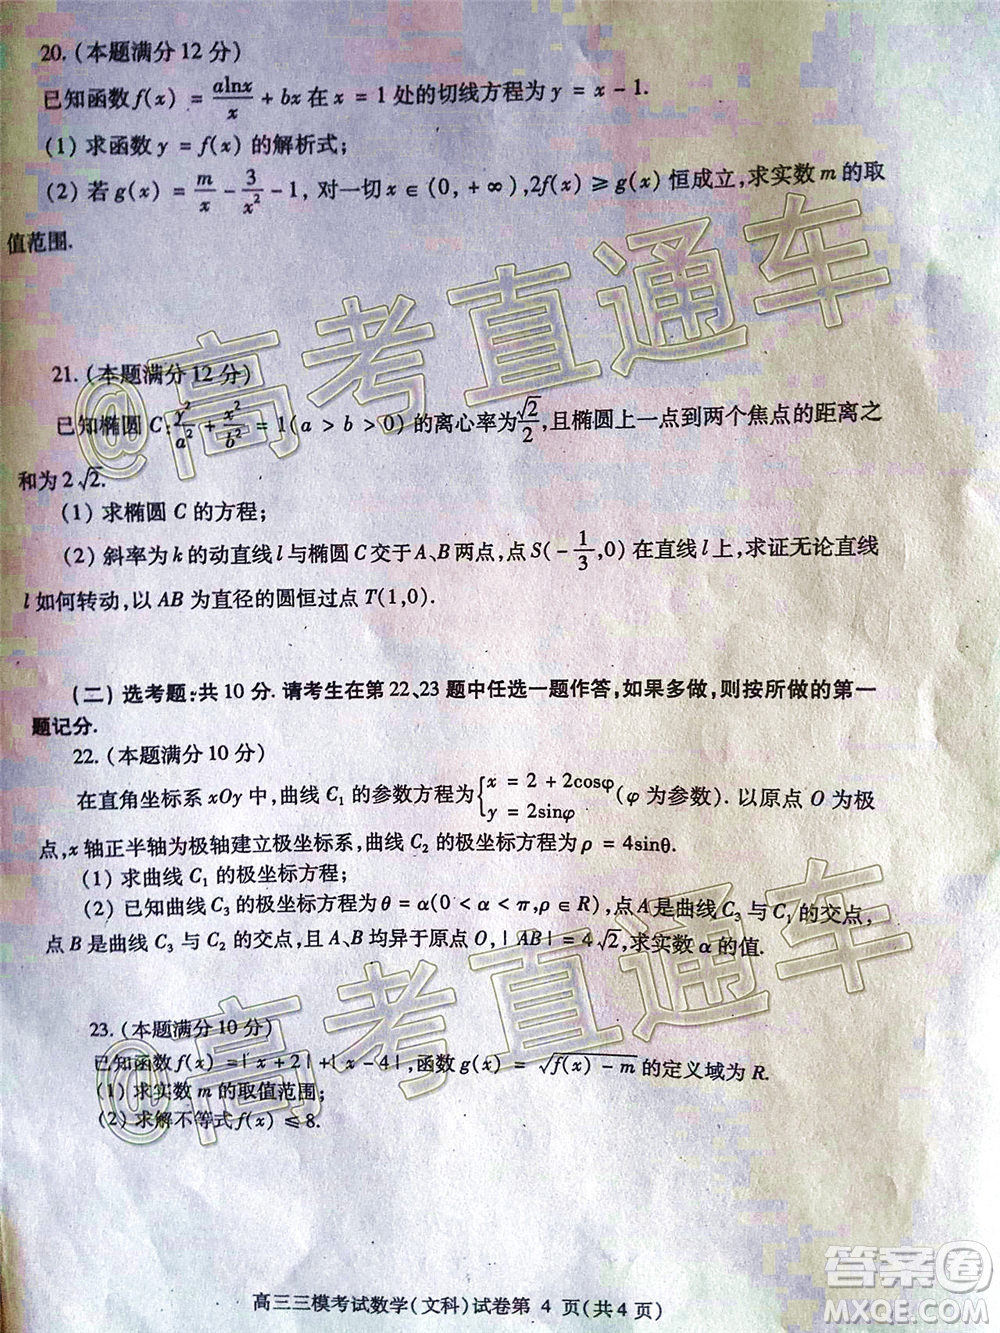 20. (本题满分12分)
已知函数f(x) = alnx/x + bx 在 x = 1 处的切线方程为 y = x - 1.
(1) 求函数 y = f(x) 的解析式;
(2) 若 g(x) = m/x - 3/x² - 1, 对一切 x ∈ (0, +∞), 2f(x) ≥ g(x) 恒成立, 求实数 m 的取
值范围.
21. (本题满分12分)
已知椭圆 C: y²/a² + x²/b² = 1(a > b > 0) 的离心率为 √2/2, 且椭圆上一点到两个焦点的距离之
和为 2√2.
(1) 求椭圆 C 的方程;
(2) 斜率为 k 的动直线 l 与椭圆 C 交于 A、B 两点, 点 S(-1/3, 0) 在直线 l 上, 求证无论直线
l 如何转动, 以 AB 为直径的圆恒过点 T(1,0).
(二) 选考题: 共 10 分. 请考生在第 22、23 题中任选一题作答, 如果多做, 则按所做的第一
题记分.
22. (本题满分 10 分)
在直角坐标系 xOy 中, 曲线 C₁ 的参数方程为 { x = 2 + 2cosφ y = 2sinφ (φ 为参数). 以原点 O 为极
点, x 轴正半轴为极轴建立极坐标系, 曲线 C₂ 的极坐标方程为 ρ = 4sinθ.
(1) 求曲线 C₁ 的极坐标方程;
(2) 已知曲线 C₃ 的极坐标方程为 θ = α(0 < α < π, ρ ∈ R), 点 A 是曲线 C₃ 与 C₁ 的交点,
点 B 是曲线 C₃ 与 C₂ 的交点, 且 A、B 均异于原点 O, |AB| = 4√2, 求实数 α 的值.
23. (本题满分 10 分)
已知函数 f(x) = |x + 2| + |x - 4|, 函数 g(x) = √(f(x) - m) 的定义域为 R.
(1) 求实数 m 的取值范围;
(2) 求解不等式 f(x) ≤ 8.
高三三模考试数学(文科)试卷第 4 页(共 4 页)
@高考直通车
@高考直通车
答案圈
MXQE.COM